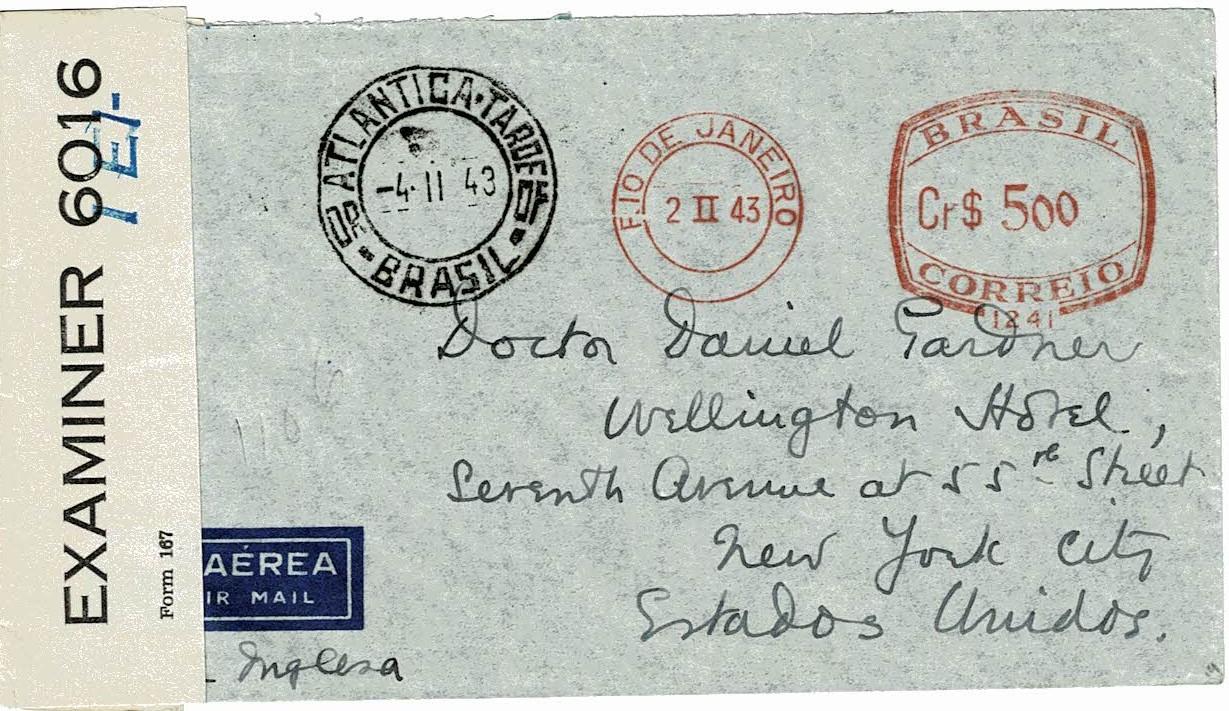 EXAMINER 6016
Form 167
ATLANTICA·TARDE
DE
BRASIL
-4·II 43
RIO DE JANEIRO
2 II 43
BRASIL
Cr$ 500
CORREIO
1241
Doctor Daniel Gardner
Wellington Hotel,
Seventh Avenue at 55th Street
New York City
Estados Unidos.
AÉREA
IR MAIL
Inglesa